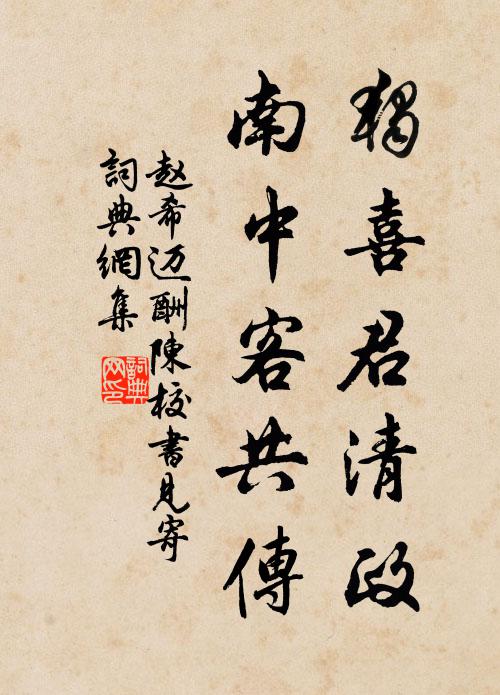 獨喜君清政
南中客共傳
赵希迈酬陳校書見寄
詞典網集
詞典网印